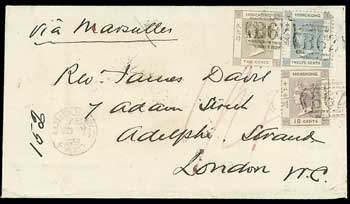 via Marseilles
HONGKONG
TWO CENTS
HONGKONG
TWELVE CENTS
B62
B62
HONGKONG
18 CENTS
B62
Revd James Davis
7 Adam Street
Adelphi. Strand
London W.C.